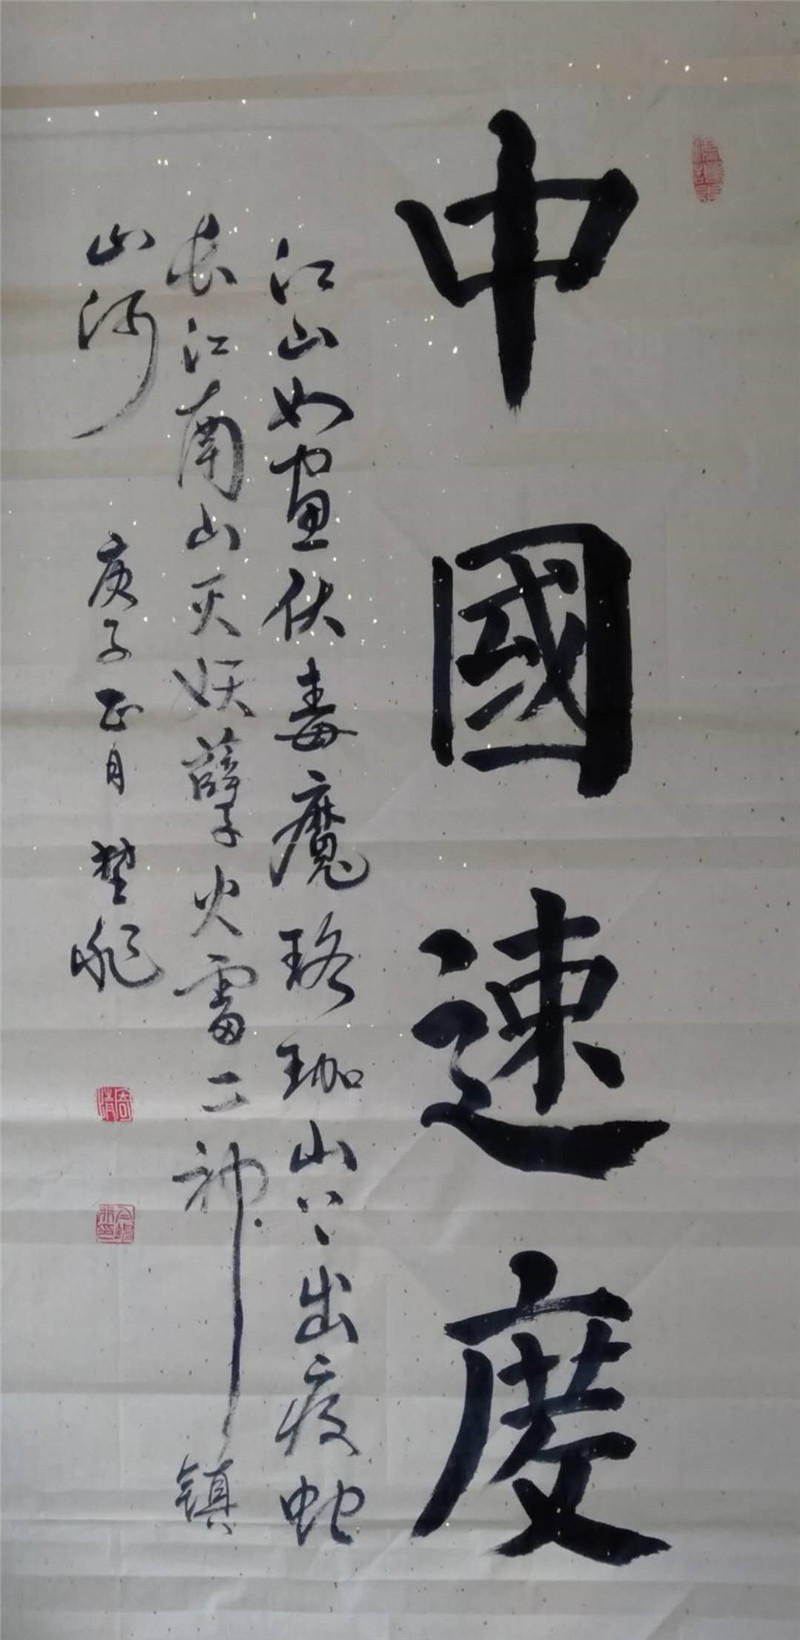 中國速度
江山如画伏毒魔珞珈山下出疫蛇
长江南山灭妖孽火雷二神镇
山河
庚子正月楚